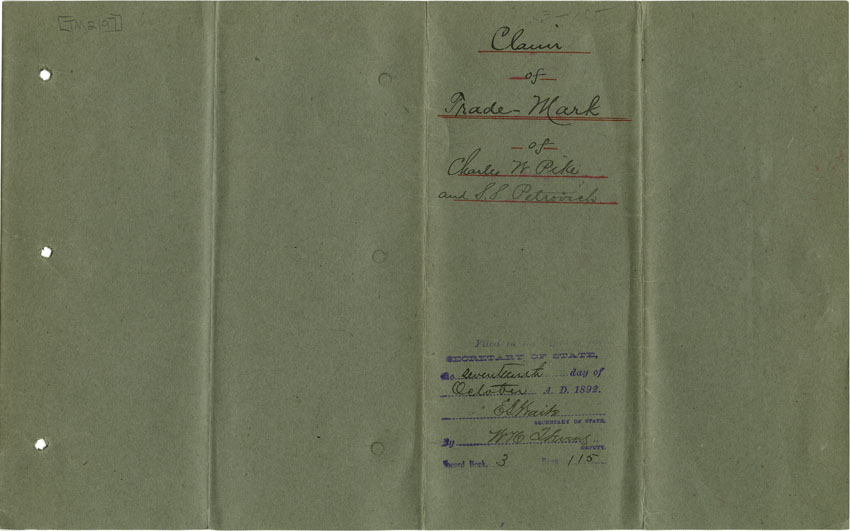 [TM219]
Claim
of
Trade-Mark
of
Charles W. Pike
and S. S. Petrovich
Filed in
SECRETARY OF STATE,
seventeenth day of
October A. D. 1892.
SECRETARY OF STATE.
By W H
DEPUTY.
Record Book 3 Page 115